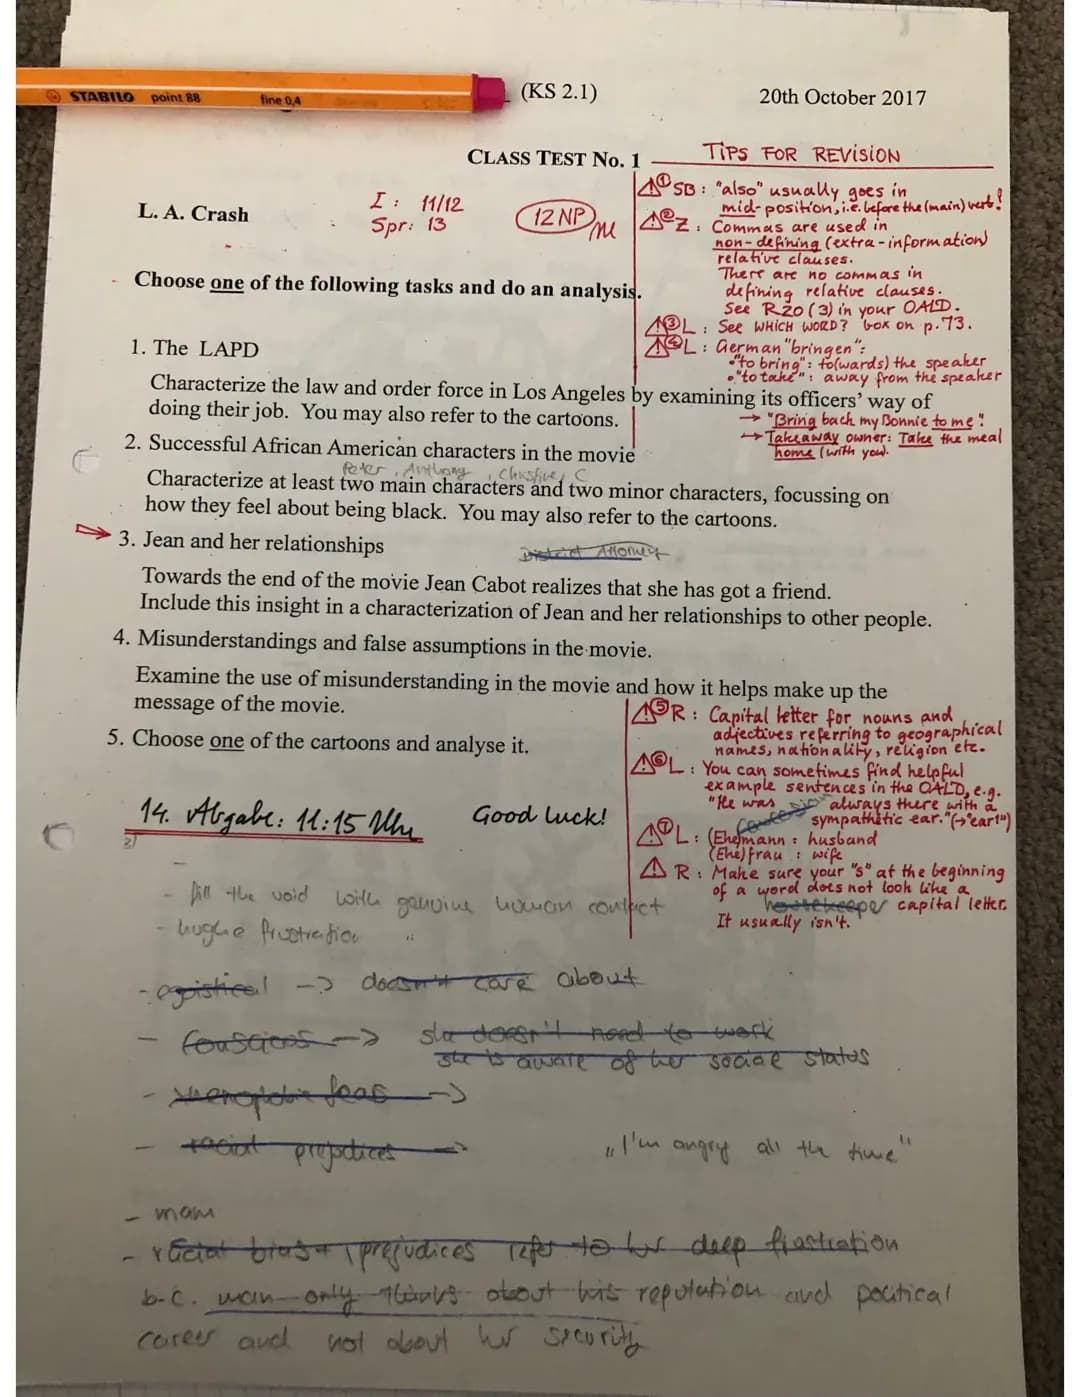 STABILO point 88 fine 0,4
(KS 2.1)
20th October 2017
CLASS TEST No. 1
TIPS FOR REVISION
L. A. Crash
I: 11/12
Spr: 13
12 NP
① SB: "also" usually goes in
mid-position, i.e. before the (main) verb!
② Z: Commas are used in
non-defining (extra-information)
relative clauses.
There are no commas in
defining relative clauses.
See R20 (3) in your OALD.
③ L: See WHICH WORD? box on p.73.
④ L: German "bringen":
• "to bring": to(wards) the speaker
• "to take": away from the speaker
→ "Bring back my Bonnie to me"!
→ Takeaway owner: Take the meal
home (with you).
Choose one of the following tasks and do an analysis.
1. The LAPD
Characterize the law and order force in Los Angeles by examining its officers' way of
doing their job. You may also refer to the cartoons.
2. Successful African American characters in the movie
Peter, Anthony, Christine, C
Characterize at least two main characters and two minor characters, focussing on
how they feel about being black. You may also refer to the cartoons.
3. Jean and her relationships
District Attorney
Towards the end of the movie Jean Cabot realizes that she has got a friend.
Include this insight in a characterization of Jean and her relationships to other people.
4. Misunderstandings and false assumptions in the movie.
Examine the use of misunderstanding in the movie and how it helps make up the
message of the movie.
5. Choose one of the cartoons and analyse it.
⑤ R: Capital letter for nouns and
adjectives referring to geographical
names, nationality, religion etc.
⑥ L: You can sometimes find helpful
example sentences in the OALD, e.g.
"He was always there with a
sympathetic ear." (→"ear!")
⑦ L: (Ehe)mann: husband
(Ehe)frau: wife
R: Make sure your "s" at the beginning
of a word does not look like a
housekeeper capital letter.
It usually isn't.
14. Abgabe: 11:15 Uhr
Good luck!
3)
- fill the void with genuine human contact
- hughe frustration
- egoistical -> doesn't care about
- -> she doesn't need to work
she is aware of her social status
- ->
- racial prejudices ->
„I'm angry all the time"
- mom
- racial bias + prejudices refer to her deep frustration
b.c. man only thinks about his reputation and political
career and not about her security